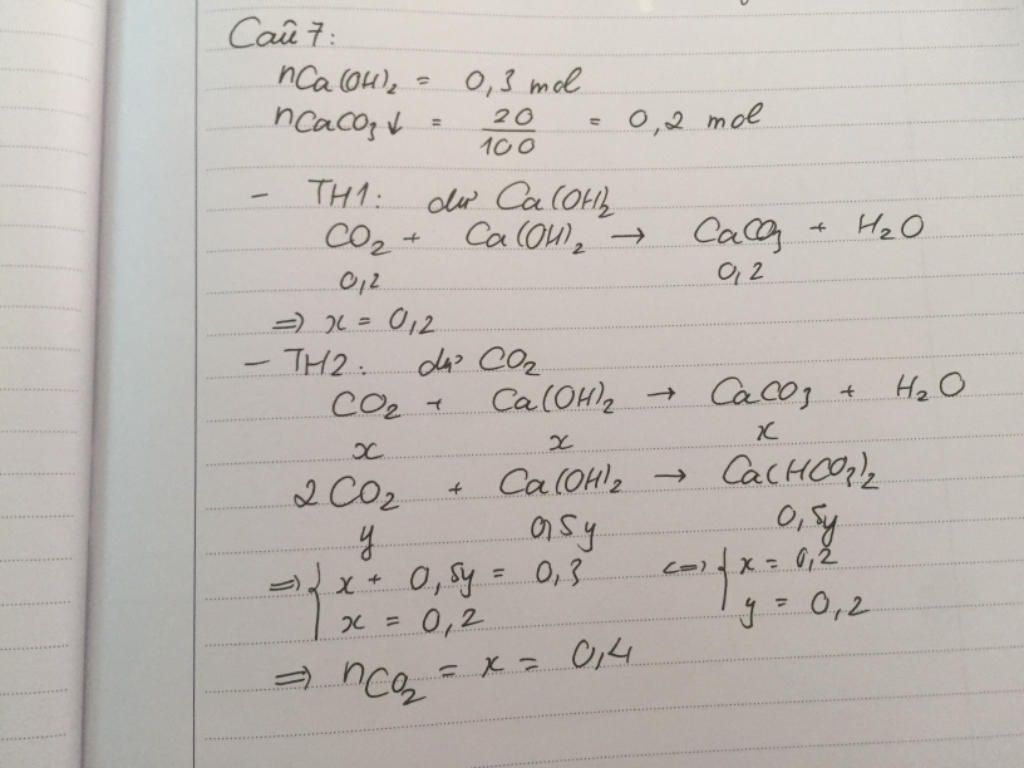 Câu 7:
nCa(OH)₂ = 0,3 mol
nCaCO₃↓ = 20/100 = 0,2 mol
- TH1: dư Ca(OH)₂
CO₂ + Ca(OH)₂ → CaCO₃ + H₂O
0,2 0,2
=> x = 0,2
- TH2: dư CO₂
CO₂ + Ca(OH)₂ → CaCO₃ + H₂O
x x x
2CO₂ + Ca(OH)₂ → Ca(HCO₃)₂
y 0,5y 0,5y
=> { x + 0,5y = 0,3 <=> { x = 0,2
x = 0,2 y = 0,2
=> nCO₂ = x = 0,4